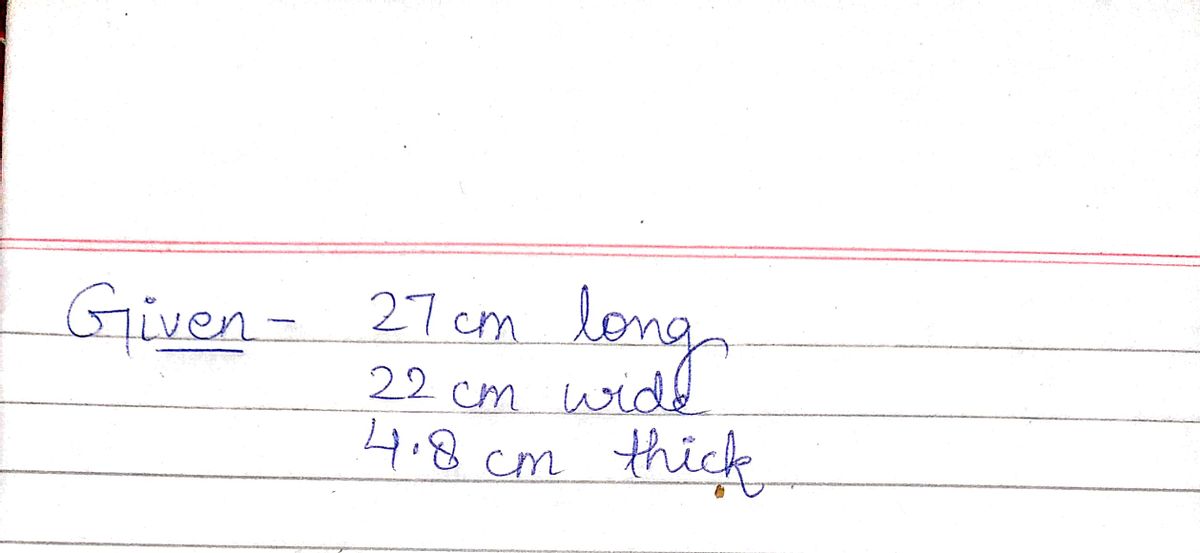 Given - 27 cm long
22 cm wide
4.8 cm thick